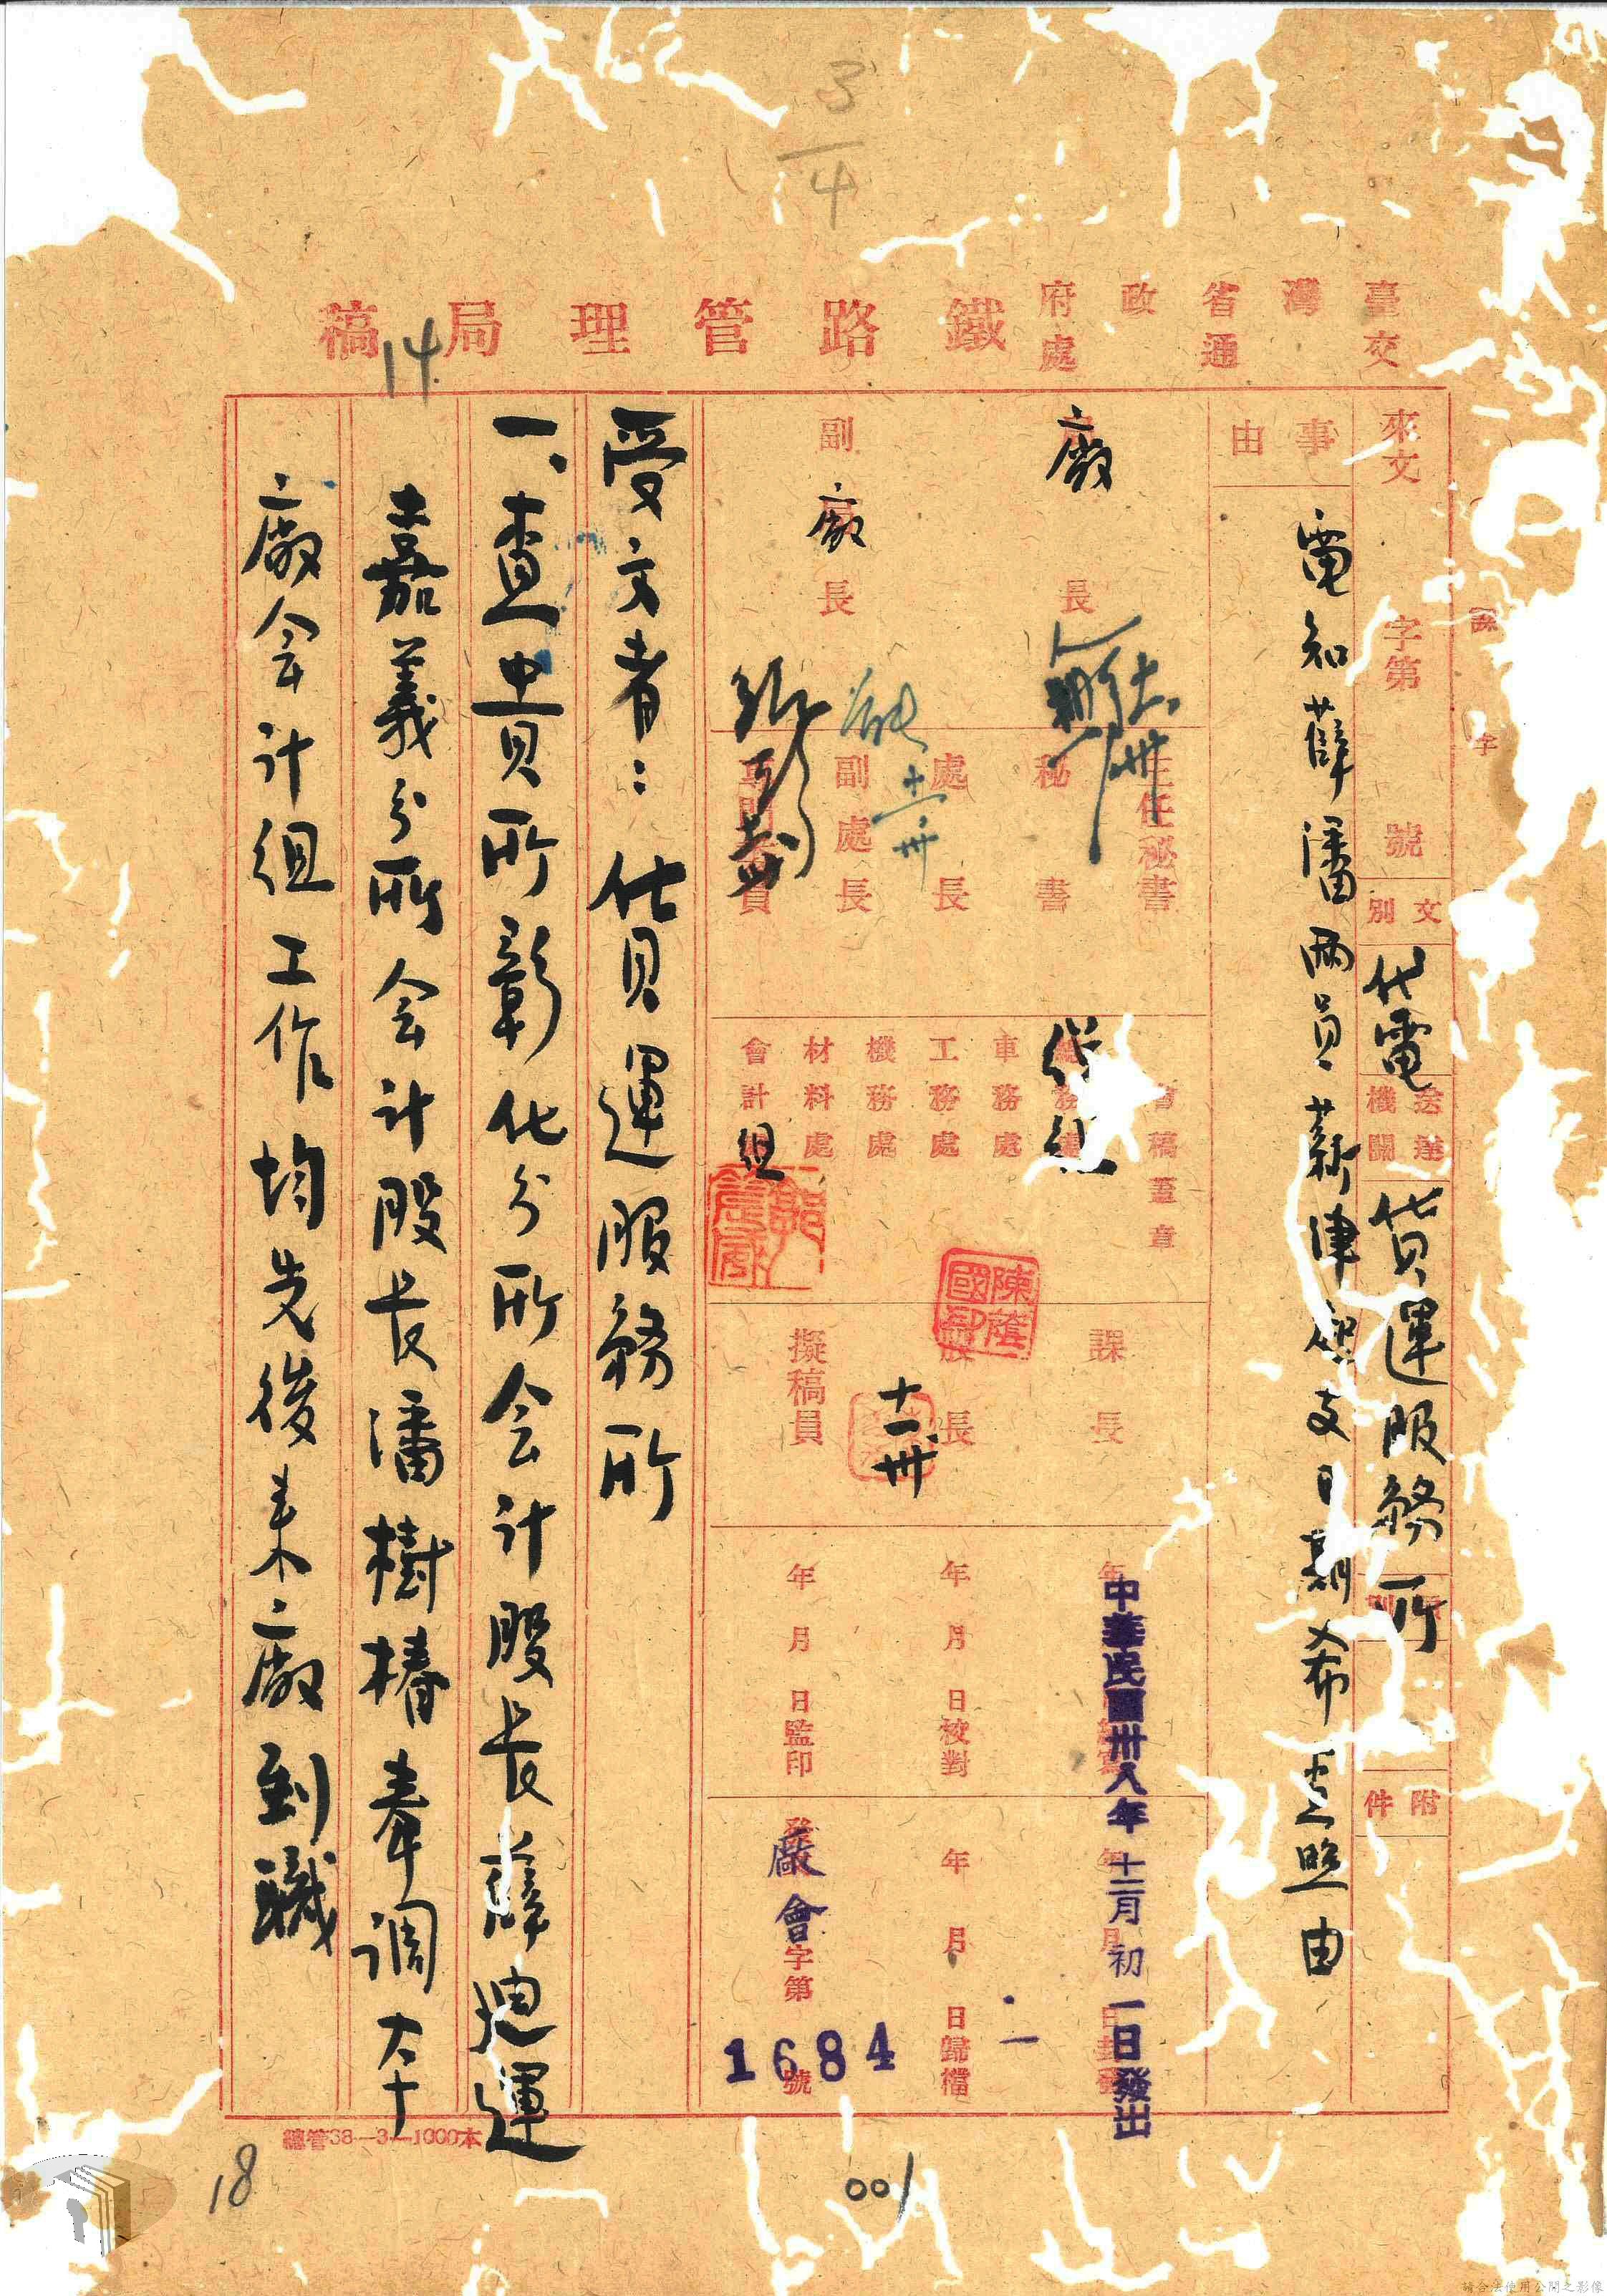 3/4
臺灣省政府
交通處
鐵路管理局稿
14
來文 字第 號
文別 代電
送達機關 貨運服務所
附件
事由
電知薛潘兩員薪津啟支日期希查照由
廠長
副廠長
主任秘書
秘書
處長
副處長
專門委員
會稿蓋章
車務處
工務處
機務處
材料處
會計組
課長
股長
擬稿員
陳蔭國印
十一卅
年 月 日校對
年 月 日監印
中華民國卅八年十二月初一日發出
年 月 日歸檔
廠會字第1684號
受文者：貨運服務所
一、查貴所彰化分所会計股长薛迪運
嘉義分所会計股长潘樹椿奉调本
廠会计组工作均先後来廠到職
總管38-3-1000本
18
001
請合法使用公開之影像